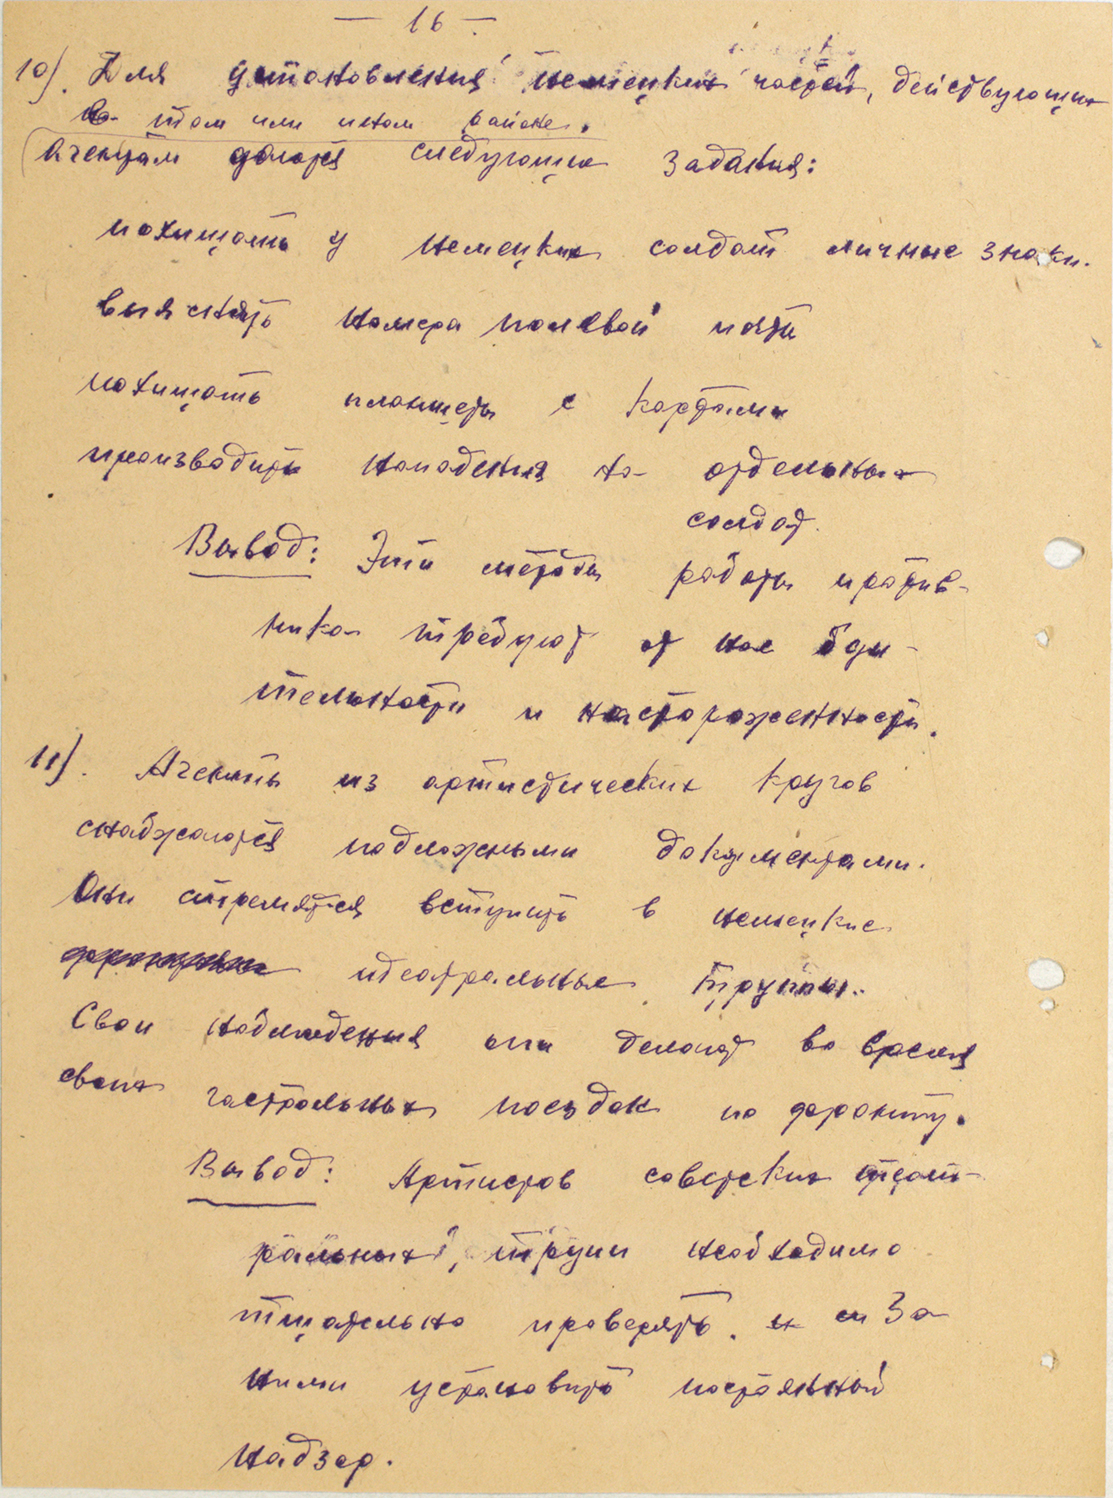 — 16 —
10). Для установления немецких частей, действующих
в том или ином районе.
агентам даются следующие задания:
похищать у немецких солдат личные знаки.
выяснять номера полевой почты
похищать планшеты с картами
производить нападения на отдельных
солдат.
Вывод: Эти методы работы против-
ника требуют от нас бди-
тельности и настороженности.
11). Агенты из артистических кругов
снабжаются подложными документами.
Они стремятся вступить в немецкие
театральные труппы.
Свои наблюдения они делают во время
своих гастрольных поездок по фронту.
Вывод: Артистов советских театр-
ральных трупп необходимо
тщательно проверять. и за
ними установить постоянный
надзор.